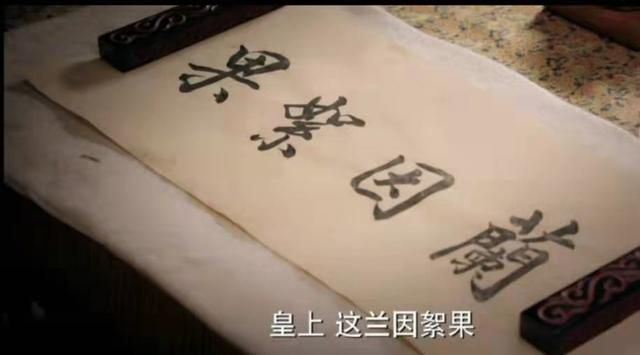 蘭因絮果
皇上 这兰因絮果